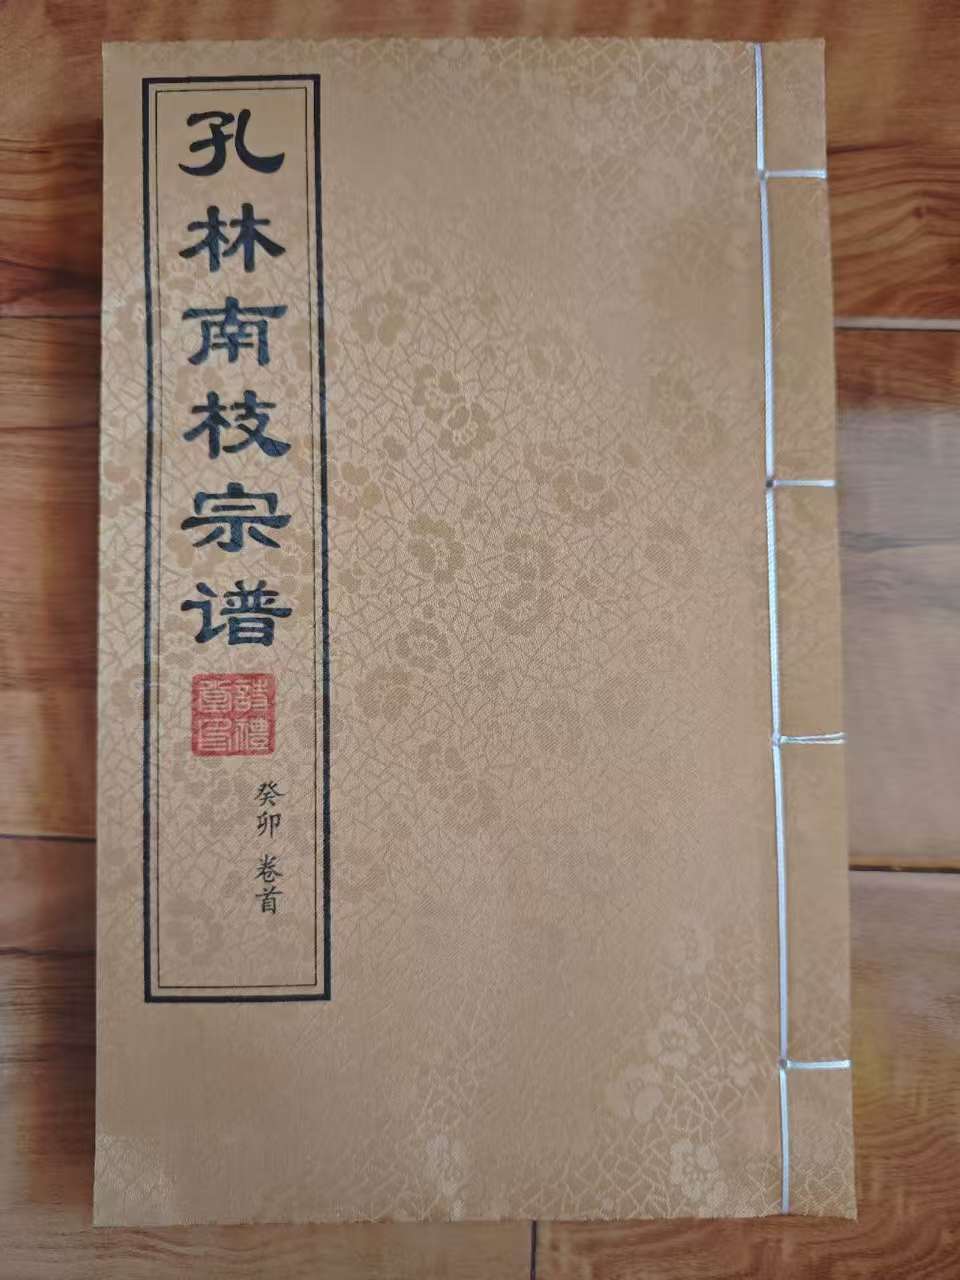 孔林南枝宗谱
詩禮
堂印
癸卯 卷首